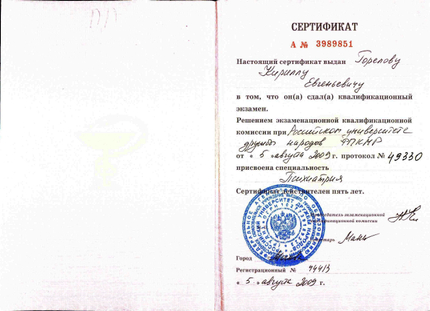 СЕРТИФИКАТ
А № 3989851
Настоящий сертификат выдан Горелову
Кириллу
Евгеньевичу
в том, что он(а) сдал(а) квалификационный
экзамен.
Решением экзаменационной квалификационной
комиссии при Российском университете
дружбы народов ФПКМР
от « 5 » августа 2009 г. протокол № 49330
присвоена специальность
Психиатрия
Сертификат действителен пять лет.
экзаменационной
квалификационной комиссии
Город
Регистрационный №
« 5 » августа 2009 г.